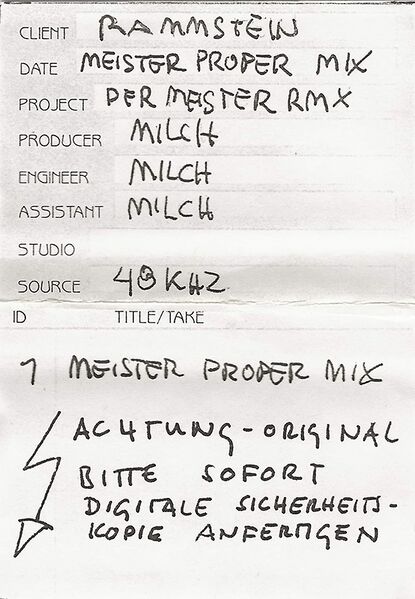 CLIENT RAMMSTEIN
DATE MEISTER PROPER MIX
PROJECT DER MEISTER RMX
PRODUCER MILCH
ENGINEER MILCH
ASSISTANT MILCH
STUDIO
SOURCE 48 KHZ
ID TITLE/TAKE
1 MEISTER PROPER MIX
ACHTUNG-ORIGINAL
BITTE SOFORT
DIGITALE SICHERHEITS-
KOPIE ANFERTIGEN